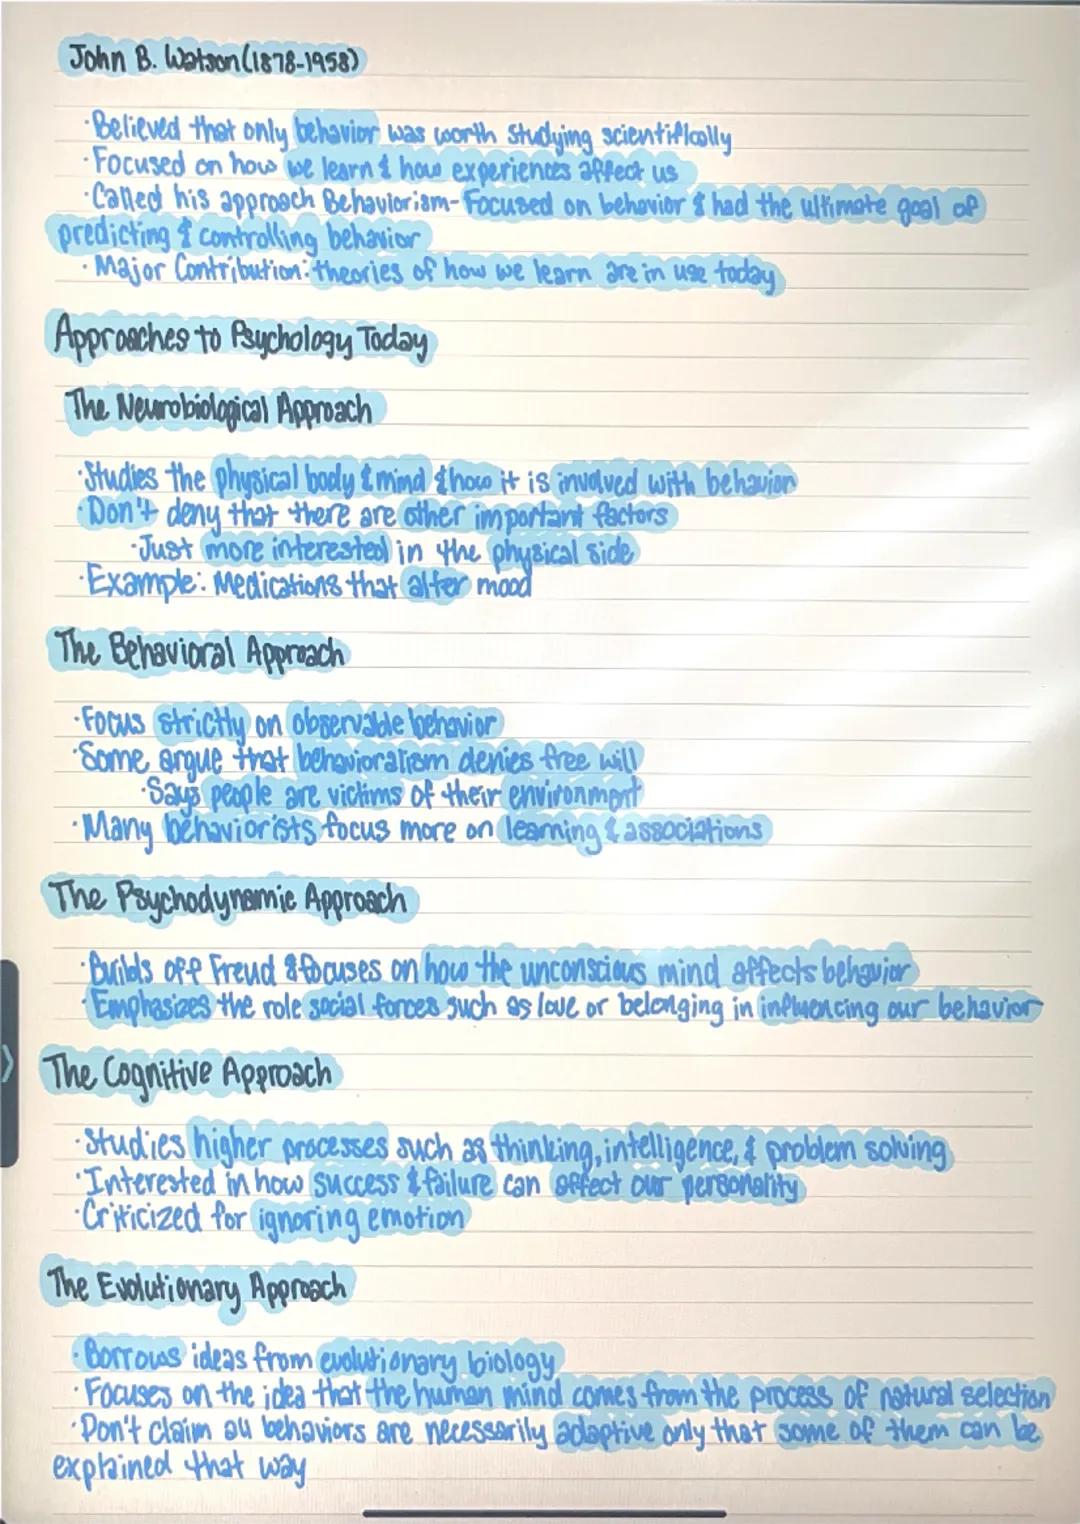 John B. Watson (1878-1958)
·Believed that only behavior was worth studying scientifically
·Focused on how we learn & how experiences affect us
·Called his approach Behaviorism- Focused on behavior & had the ultimate goal of
predicting & controlling behavior
·Major Contribution: theories of how we learn are in use today
Approaches to Psychology Today
The Neurobiological Approach
·Studies the physical body & mind & how it is involved with behavior
·Don't deny that there are other important factors
·Just more interested in the physical side
·Example: Medications that alter mood
The Behavioral Approach
·Focus strictly on observable behavior
·Some argue that behavioralism denies free will
·Says people are victims of their environment
·Many behaviorists focus more on learning & associations
The Psychodynamic Approach
·Builds off Freud & focuses on how the unconscious mind affects behavior
·Emphasizes the role social forces such as love or belonging in influencing our behavior
The Cognitive Approach
·Studies higher processes such as thinking, intelligence, & problem solving
·Interested in how success & failure can affect our personality
·Criticized for ignoring emotion
The Evolutionary Approach
·Borrows ideas from evolutionary biology
·Focuses on the idea that the human mind comes from the process of natural selection
·Don't claim all behaviors are necessarily adaptive only that some of them can be
explained that way